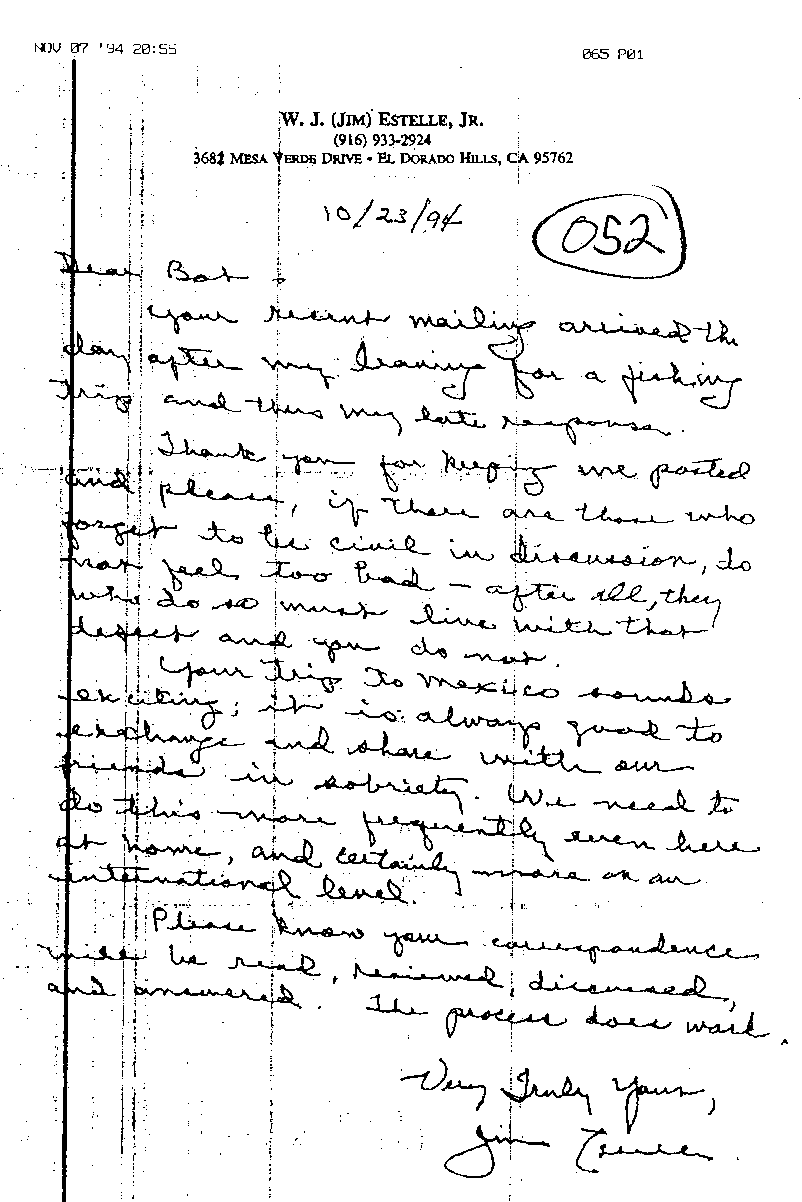 NOV 07 '94 20:55
065 P01
W. J. (JIM) ESTELLE, JR.
(916) 933-2924
3681 MESA VERDE DRIVE • EL DORADO HILLS, CA 95762
10/23/94
052
Dear Bob,
Your recent mailing arrived the
day after my leaving for a fishing
trip and thus my late response.
Thank you for keeping me posted
and please, if there are those who
forget to be civil in discussion, do
not feel too bad – after all, they
who do so must live with that
defect and you do not.
Your trip to Mexico sounds
exciting; it is always good to
exchange and share with our
friends in sobriety. We need to
do this more frequently even here
at home, and certainly more on an
international level.
Please know your correspondence
will be read, reviewed, discussed,
and answered. The process does work.
Very Truly Yours,
Jim Estelle